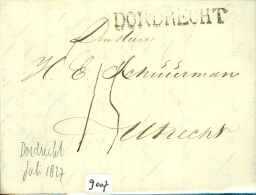 DORDRECHT
Den Heere
H. E. Schüürman
15
Utrecht
Dordrecht
Juli 1827
9007